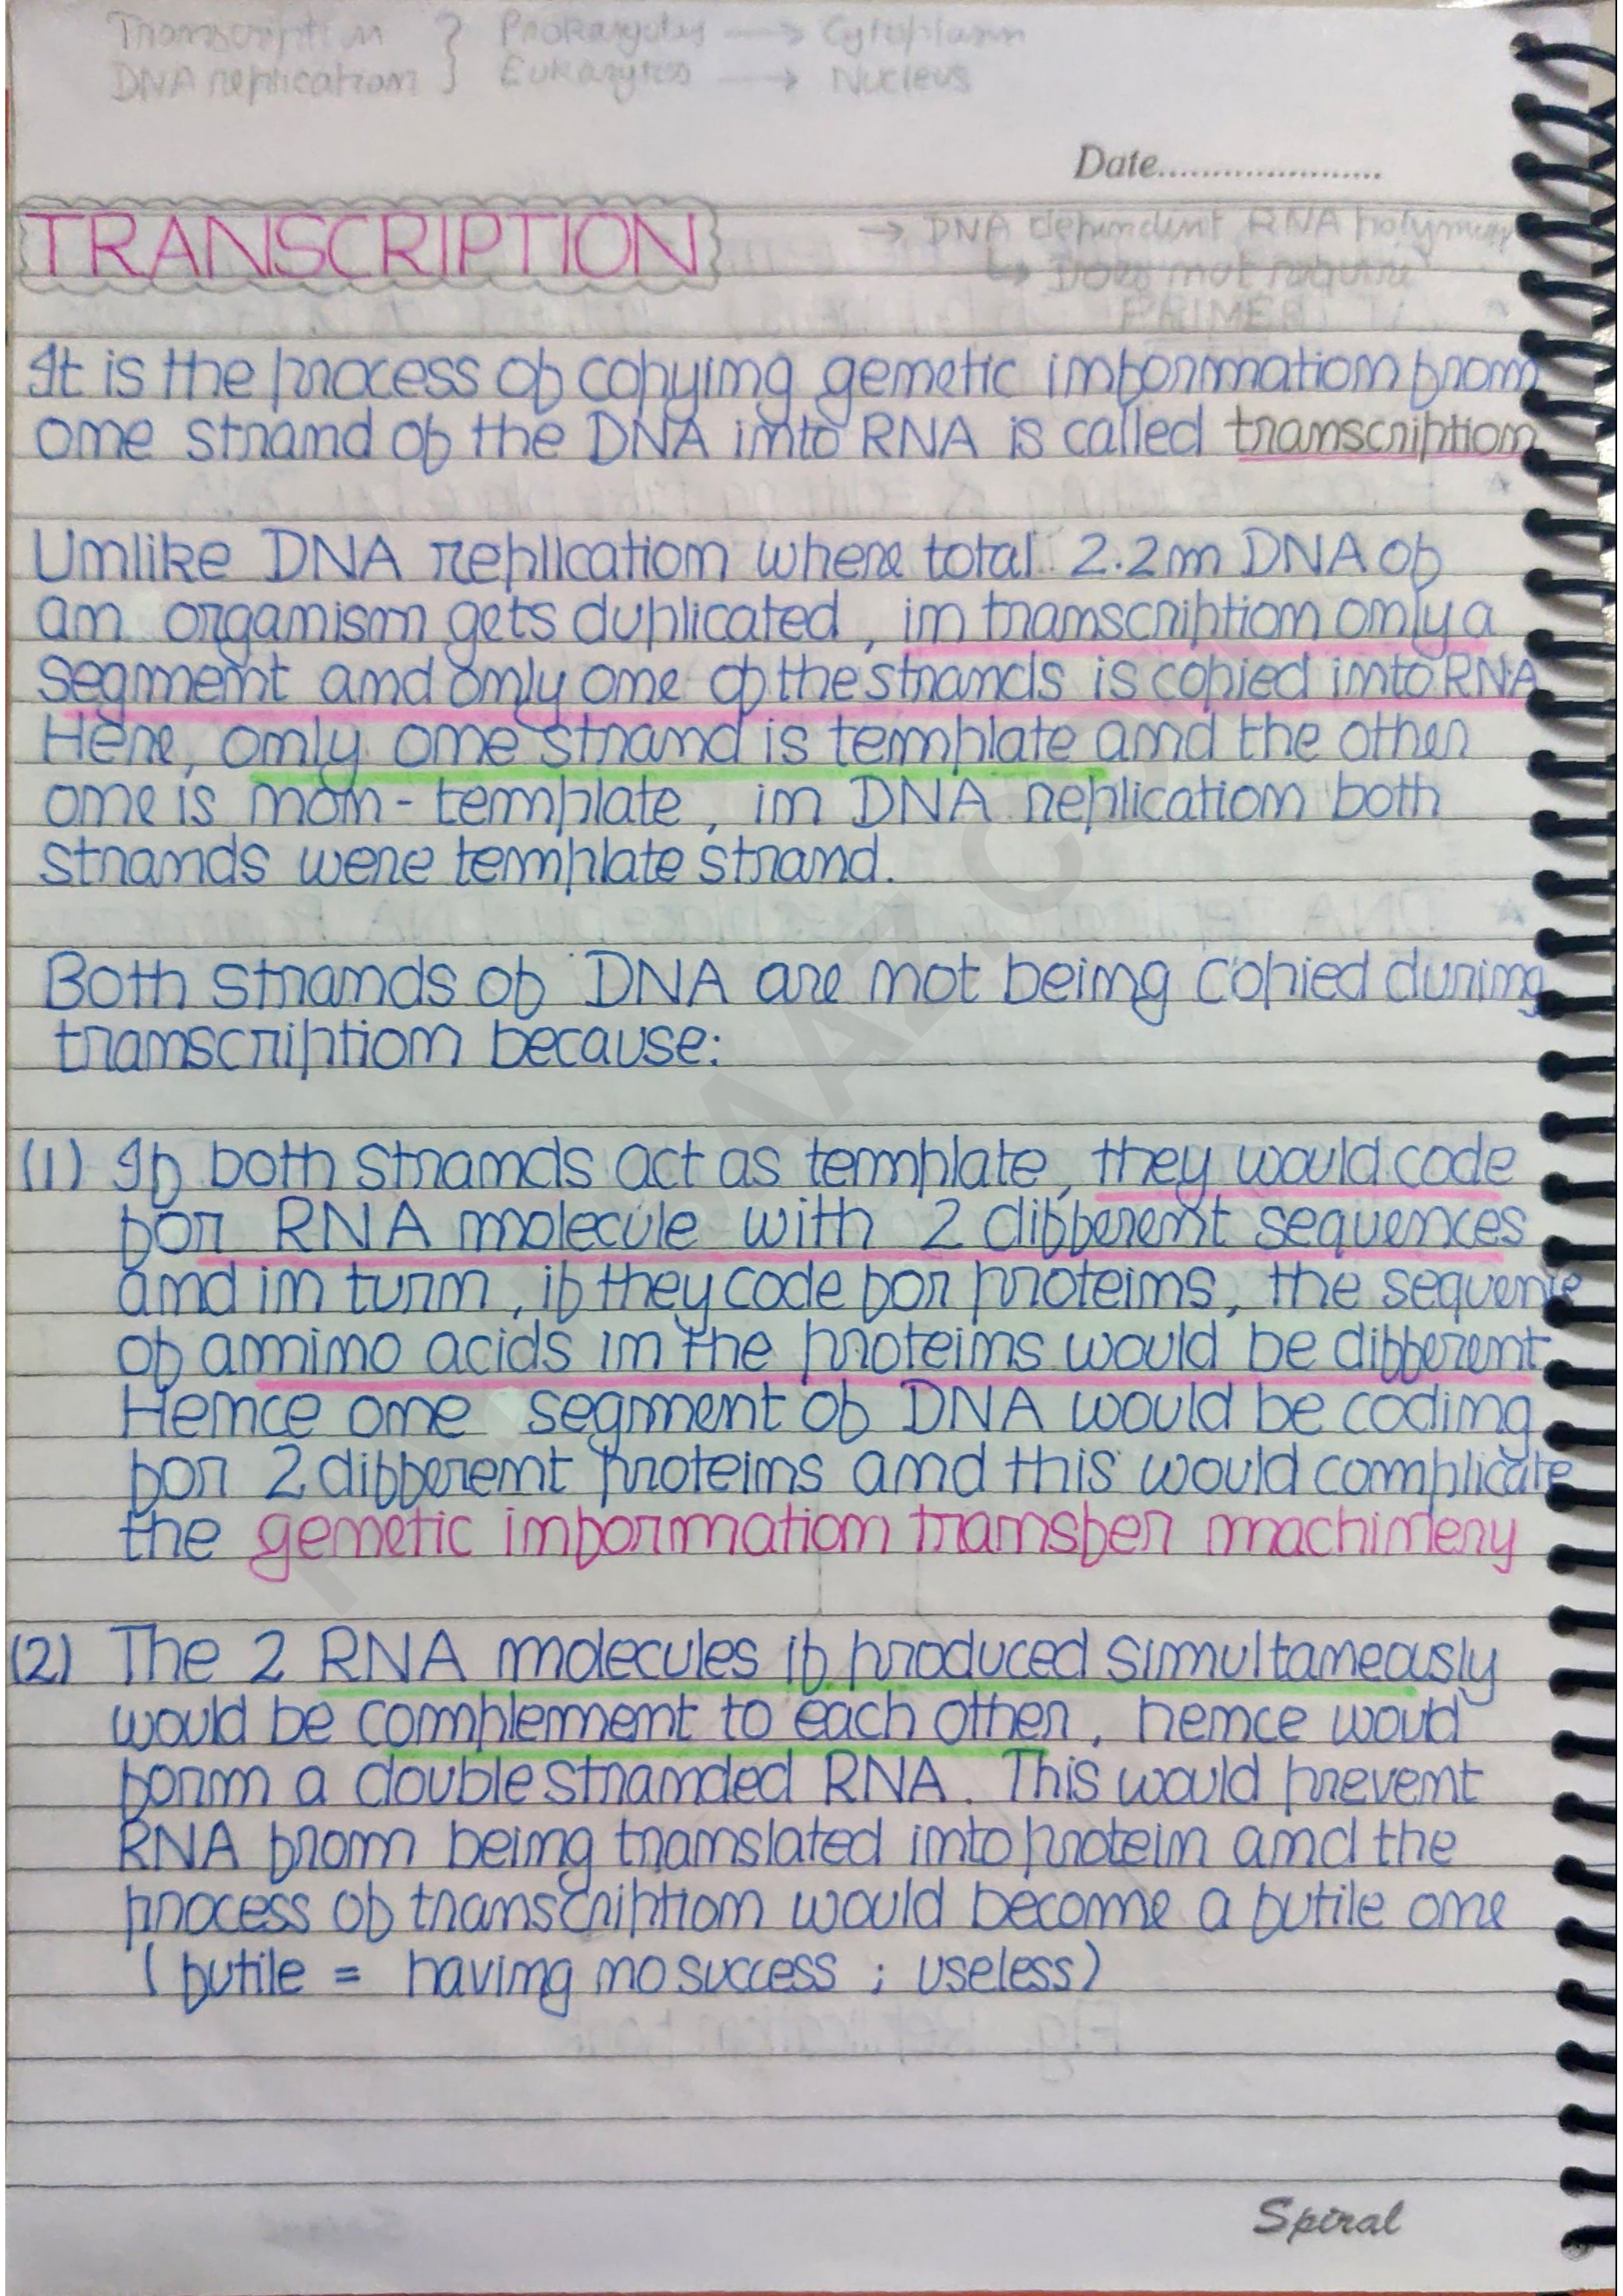 Transcription } Prokaryotes → Cytoplasm
DNA replication } Eukaryotes → Nucleus
Date......................
TRANSCRIPTION
→ DNA dependent RNA polymerase
↳ Does not require
PRIMER
It is the process of copying genetic information from
one strand of the DNA into RNA is called transcription
Unlike DNA replication where total 2.2m DNA of
an organism gets duplicated, in transcription only a
segment and only one of the strands is copied into RNA
Here, only one strand is template and the other
one is non-template, in DNA replication both
strands were template strand.
Both strands of DNA are not being copied during
transcription because:
(1) If both strands act as template, they would code
for RNA molecule with 2 different sequences
and in turn, if they code for proteins, the sequence
of amino acids in the proteins would be different
Hence one segment of DNA would be coding
for 2 different proteins and this would complicate
the genetic information transfer machinery
(2) The 2 RNA molecules if produced simultaneously
would be complement to each other, hence would
form a double stranded RNA. This would prevent
RNA from being translated into protein and the
process of transcription would become a futile one
(futile = having no success ; useless)
Spiral